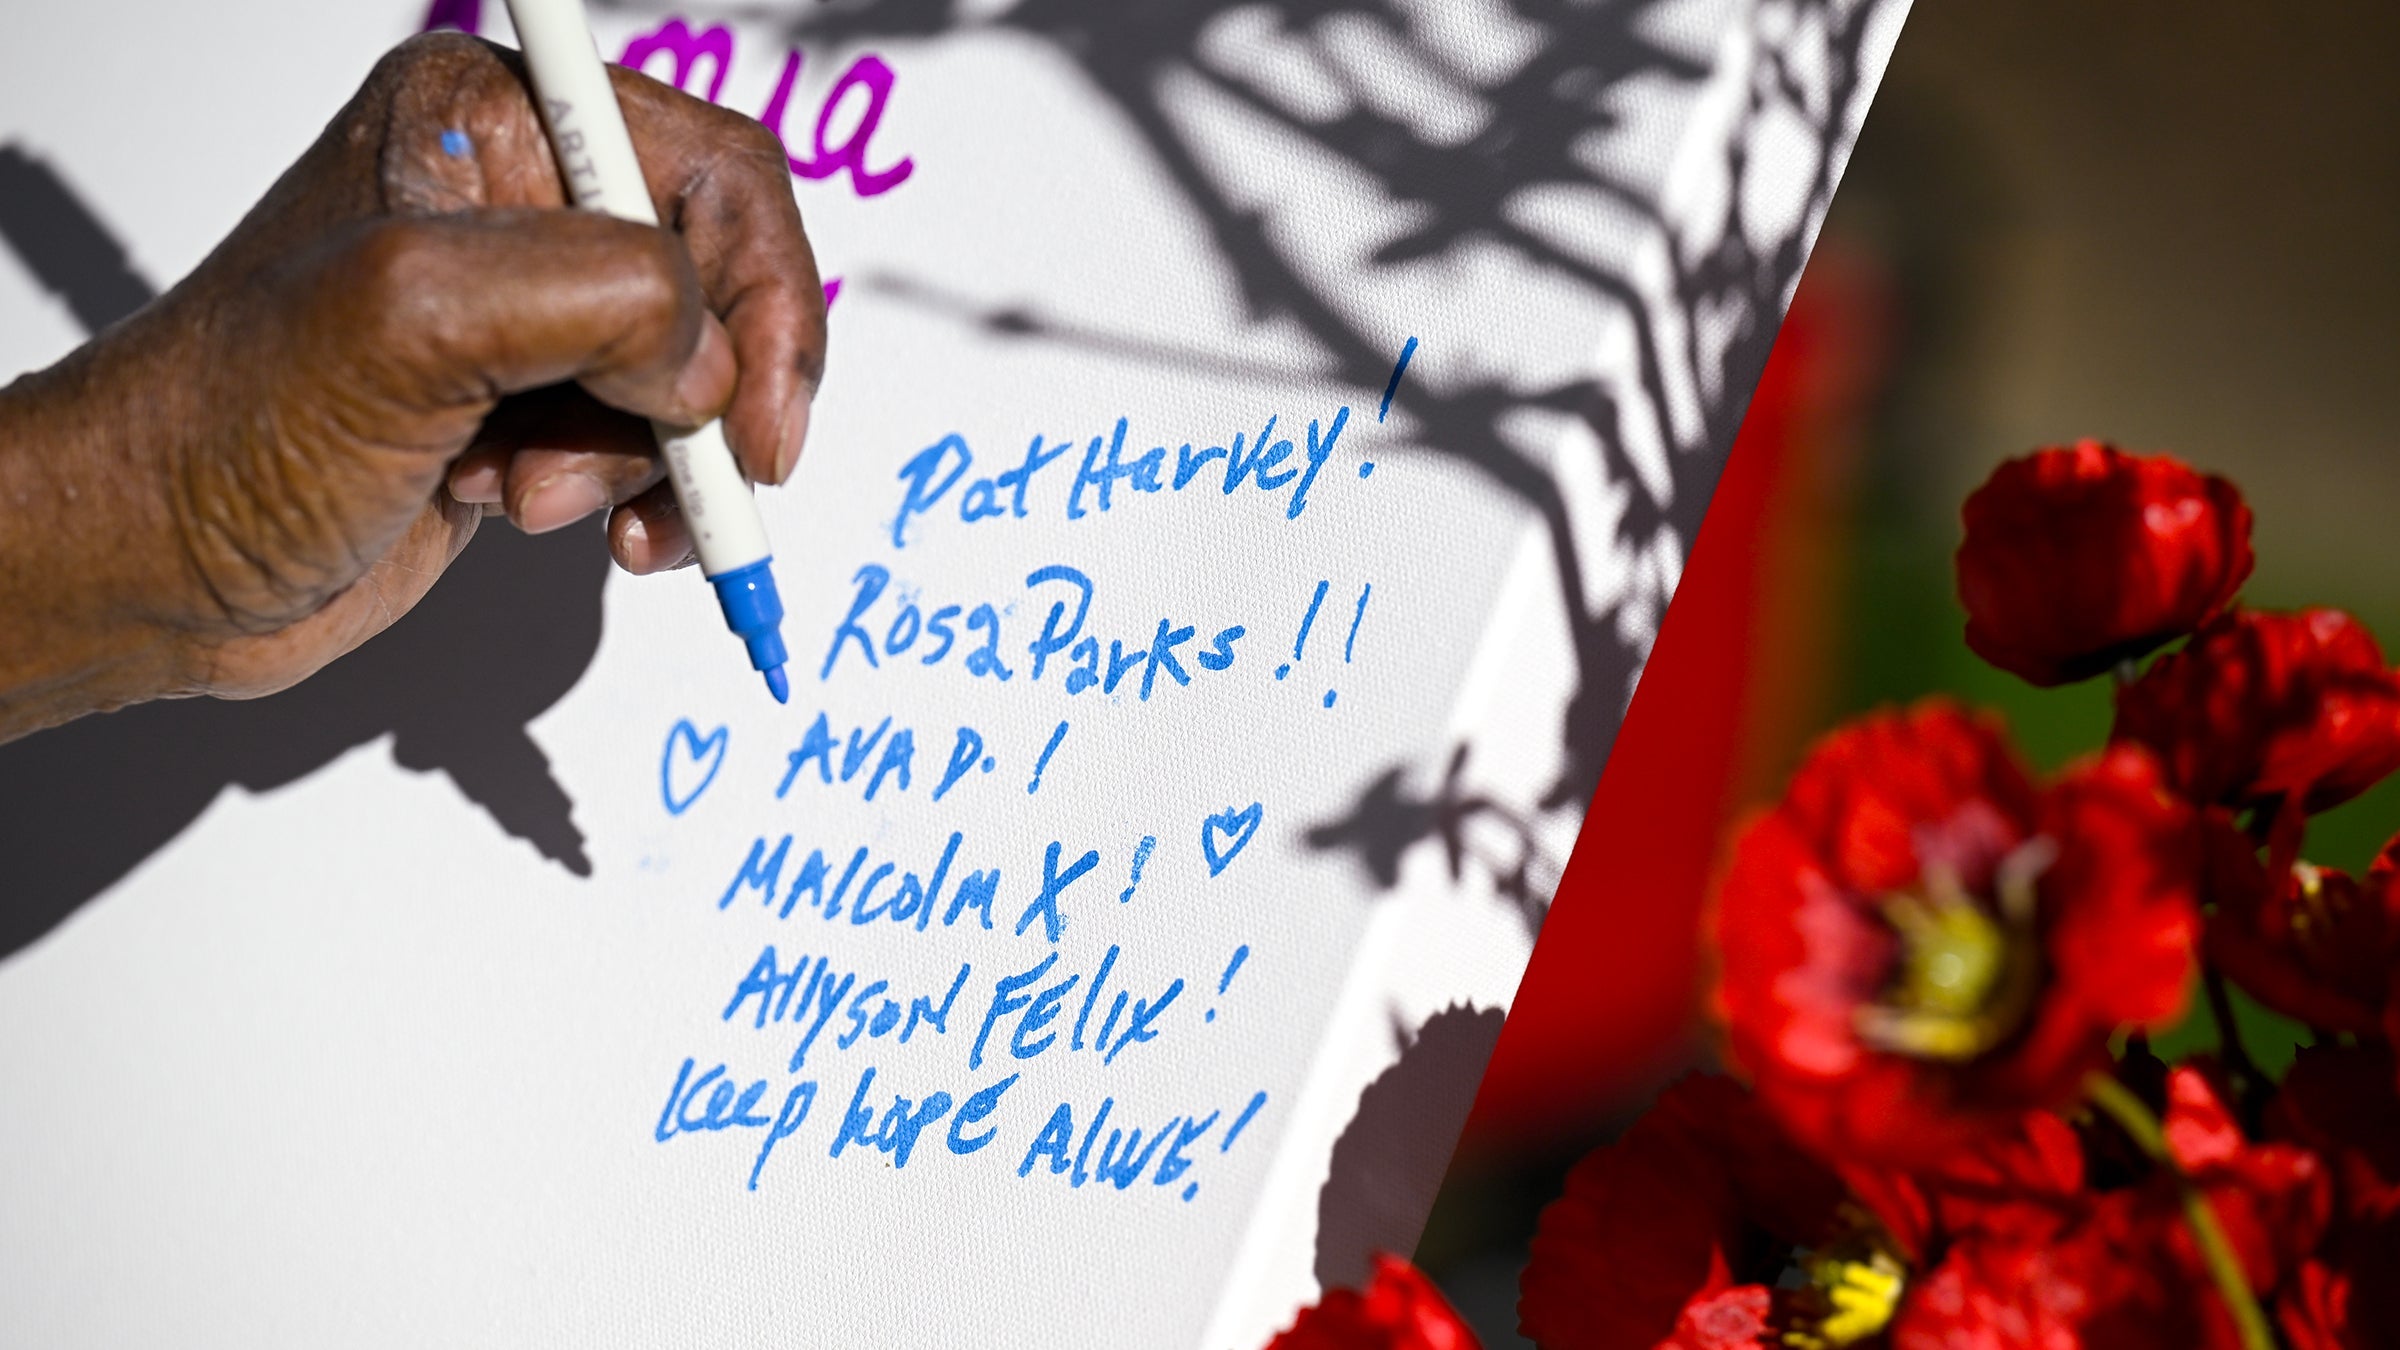 mia
ARTI
fine tip
Pat Harvey!
Rosa Parks!!
AVA D.!
Malcolm X!
Allyson FElix!
Keep hopE AlivE!